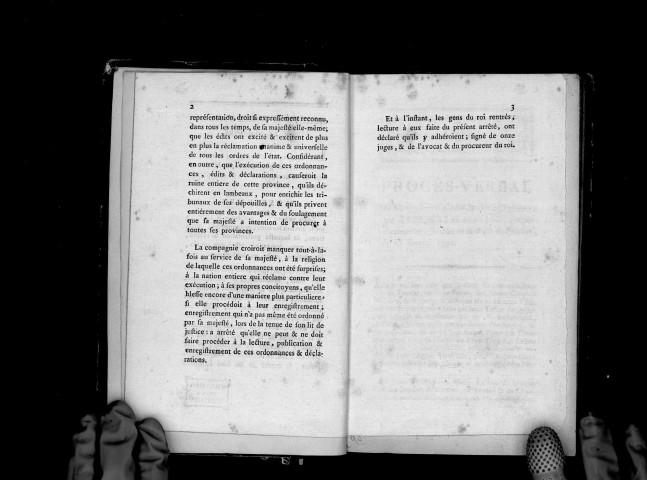 2
représentation, droit si expressément reconnu,
dans tous les temps, de sa majesté elle-même;
que les édits ont excité & excitent de plus
en plus la réclamation unanime & universelle
de tous les ordres de l'état. Considérant,
en outre, que l'exécution de ces ordonnan-
ces, édits & déclarations, causeroit la
ruine entiere de cette province, qu'ils dé-
chirent en lambeaux, pour enrichir les tri-
bunaux de ses dépouilles, & qu'ils privent
entiérement des avantages & du soulagement
que sa majesté a intention de procurer à
toutes ses provinces.
La compagnie croiroit manquer tout-à-la-
fois au service de sa majesté, à la religion
de laquelle ces ordonnances ont été surprises;
à la nation entiere qui réclame contre leur
exécution; à ses propres concitoyens, qu'elle
blesse encore d'une maniere plus particuliere,
si elle procédoit à leur enregistrement;
enregistrement qui n'a pas même été ordonné
par sa majesté, lors de la tenue de son lit de
justice: a arrêté qu'elle ne peut & ne doit
faire procéder à la lecture, publication &
enregistrement de ces ordonnances & décla-
rations.
3
Et à l'instant, les gens du roi rentrés,
lecture à eux faite du présent arrêté, ont
déclaré qu'ils y adhéroient; signé de onze
juges, & de l'avocat & du procureur du roi.
PROCÈS-VERBAL